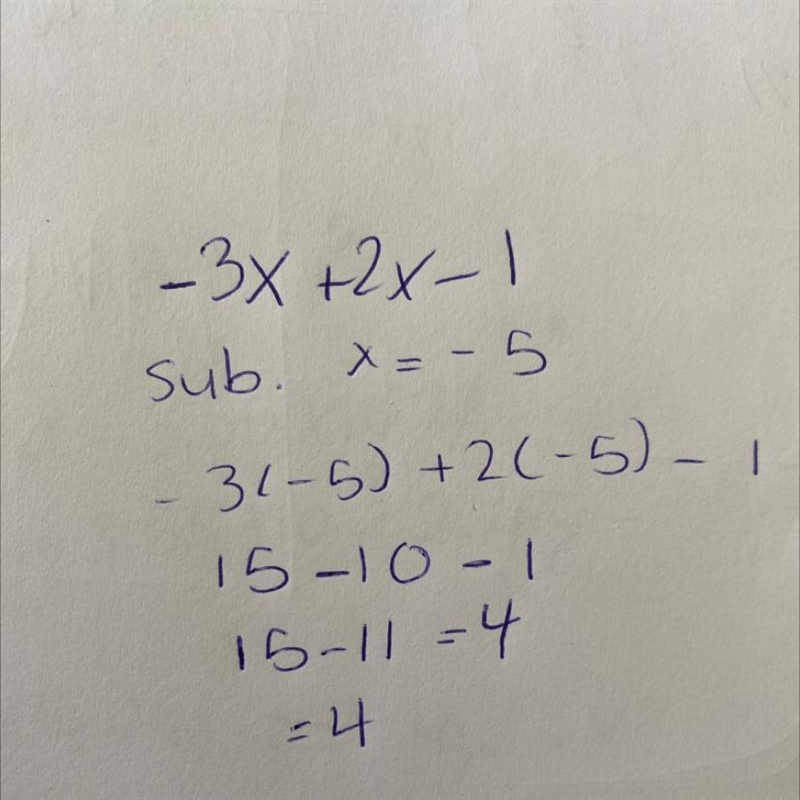 -3x +2x - 1
sub. x = - 5
- 3(-5) +2(-5) - 1
15 - 10 - 1
15 - 11 = 4
= 4